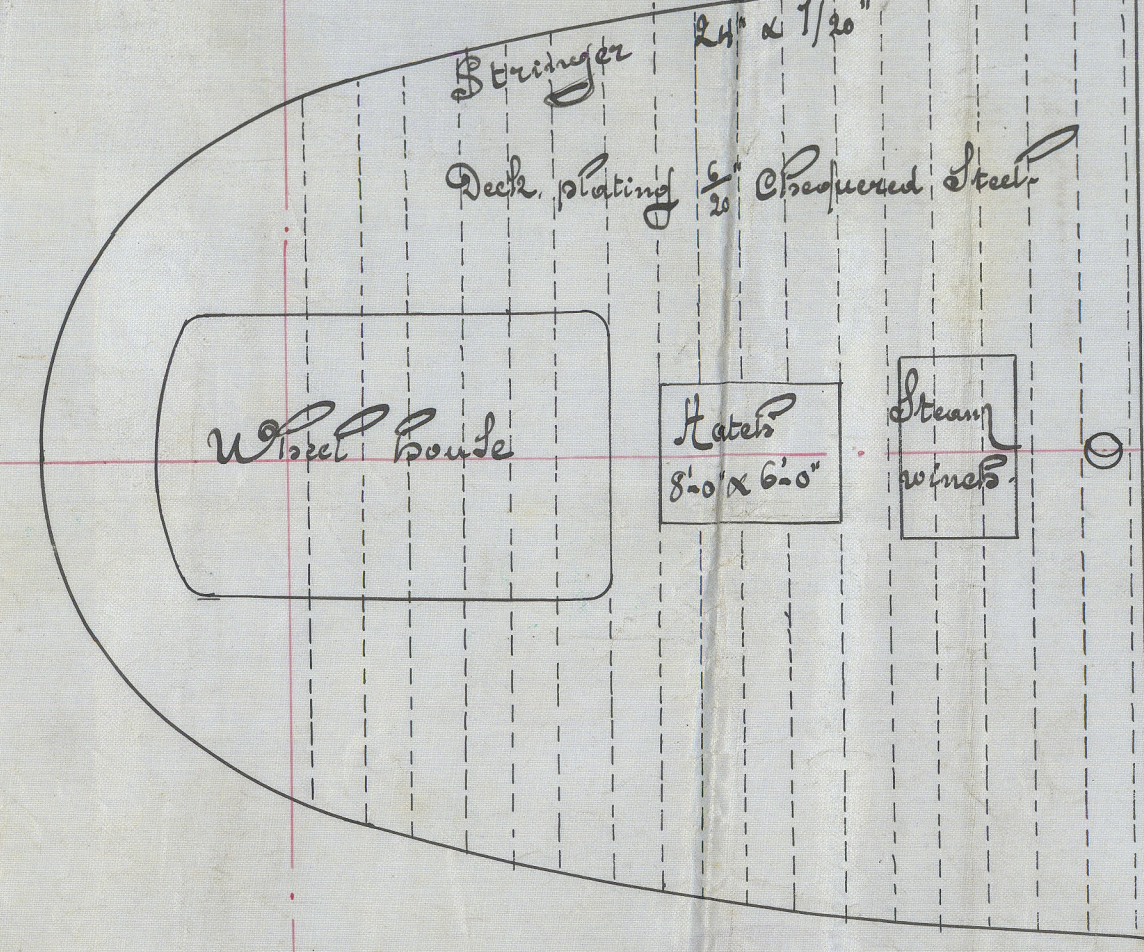 Stringer 24" x 7/20"
Deck plating 6/20" Chequered Steel.
Wheel house
Hatch
8'-0" x 6'-0"
Steam
winch.